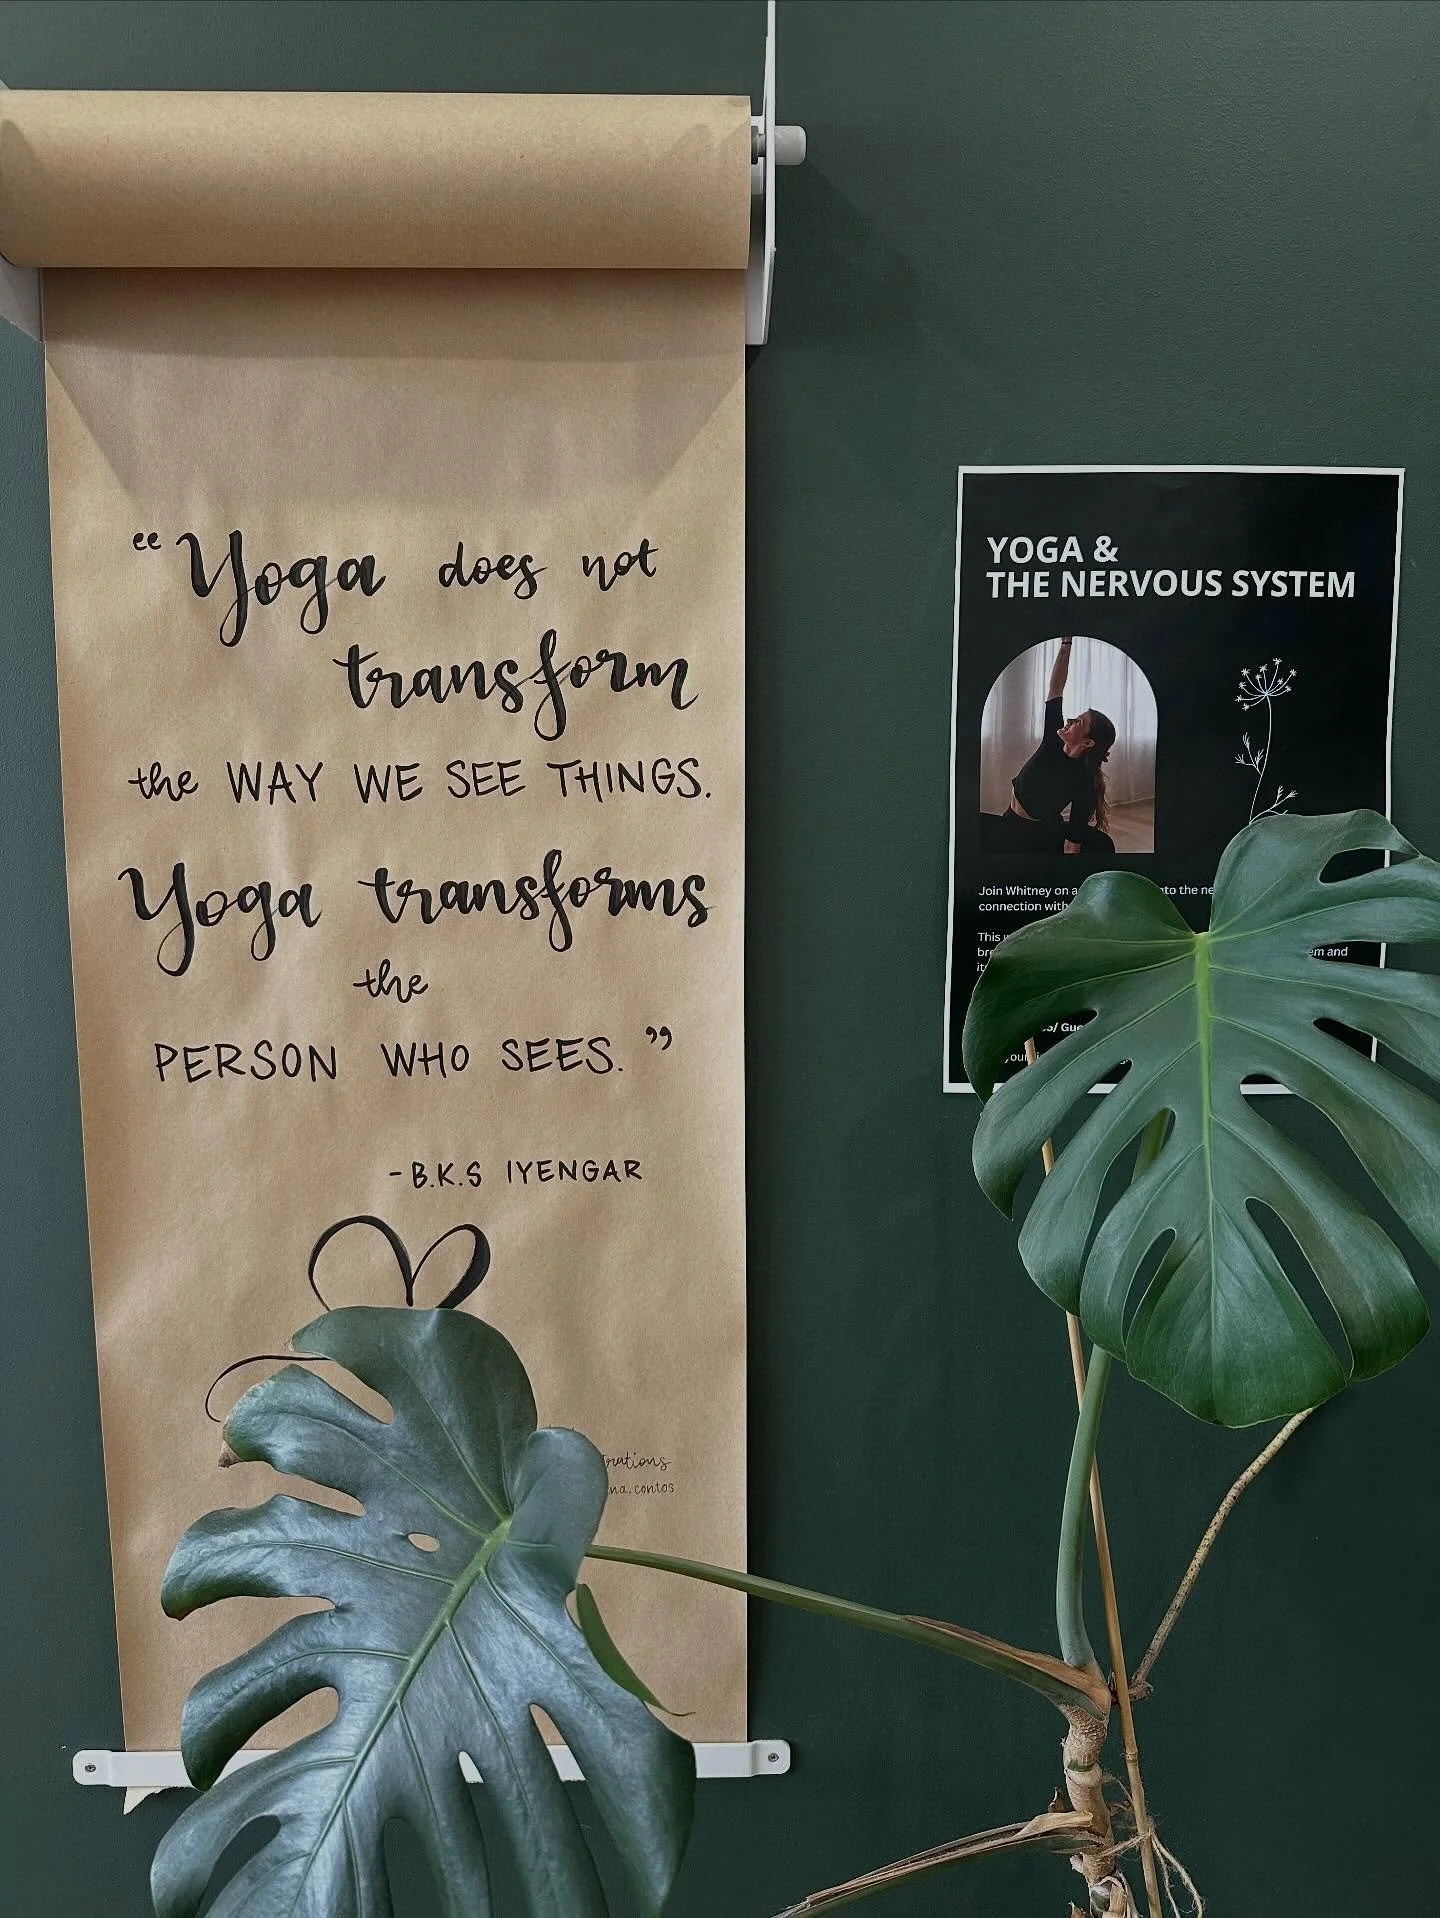 “Yoga does not
transform
the WAY WE SEE THINGS.
Yoga transforms
the
PERSON WHO SEES.”
-B.K.S IYENGAR
YOGA &
THE NERVOUS SYSTEM
Join Whitney on a to the
connection with
This
em and
your